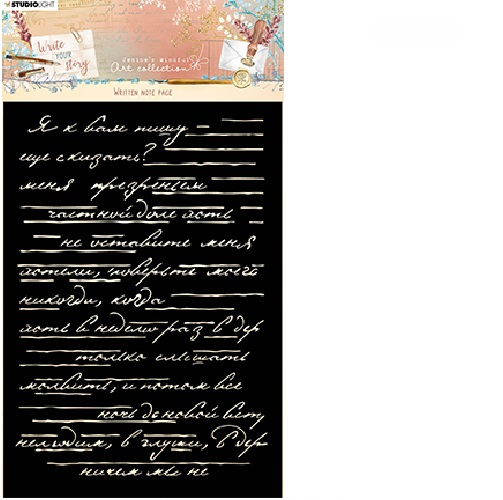 STUDIOLIGHT
Write
YOUR
story
Jenine's Mindful
Art collection
WRITTEN NOTE PAGE
Я к вам пишу –
еще сказать?
меня презреньем
частной доле
не оставите меня
поверьте моего
никогда, когда
в неделю раз в дер
только слышать
молвить, и потом все
ночь до новой вст
нелюдим, в глуши, в дер
ничем мы не